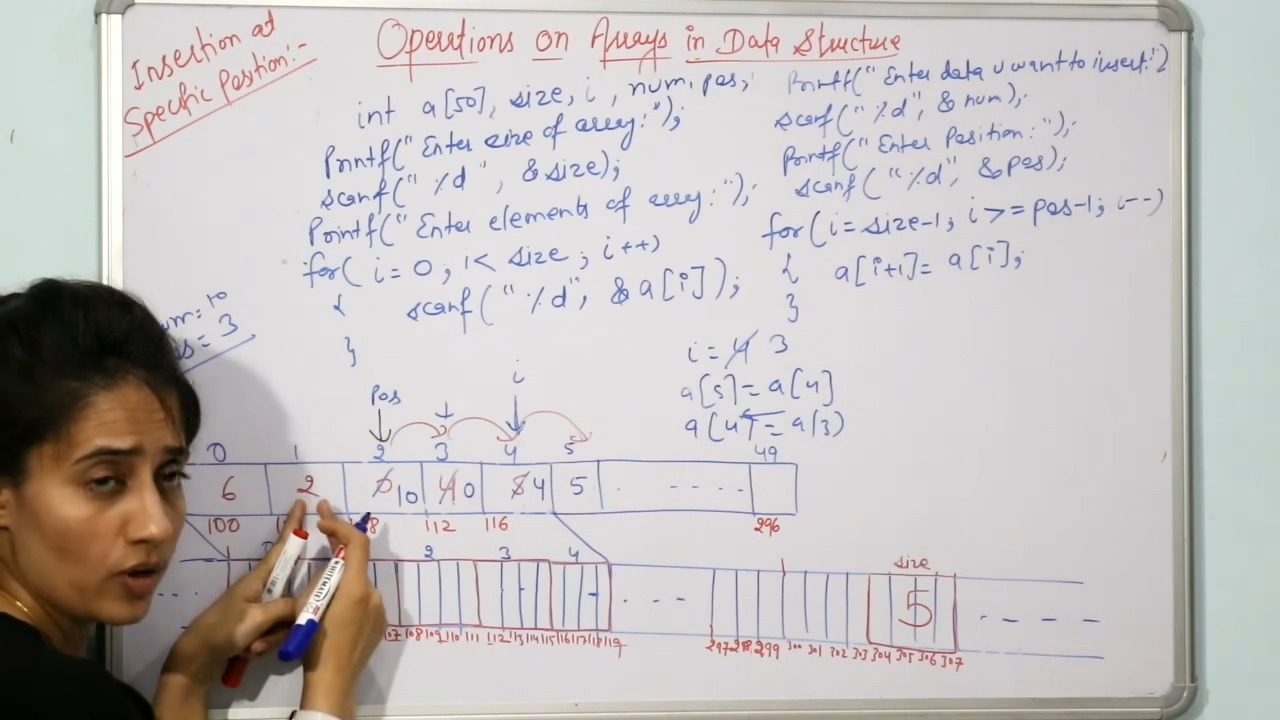 Insertion at
Specific Position:-
Operations on Arrays in Data Structure
int a[50], size, i, num, pos;
Printf("Enter size of array:");
scanf("%d", &size);
Printf("Enter elements of array:");
for( i=0; i< size; i++)
{ scanf("%d", &a[i]);
}
Printf("Enter data u want to insert:")
scanf("%d", &num);
Printf("Enter Position:");
scanf("%d", &pos);
for(i=size-1; i>=pos-1; i--)
{ a[i+1]= a[i];
}
= 10
= 3
i = 4 3
a[5]= a[4]
a[4]=a[3)
Pos i
0 1 2 3 4 5 49
6 2 0 10 4 0 5 4 5 . - - - - .
100 112 116 296
2 3 4 size
5
107 108 109 110 111 112 113 114 115 116 117 118 119 297 298 299 300 301 302 303 304 305 306 307